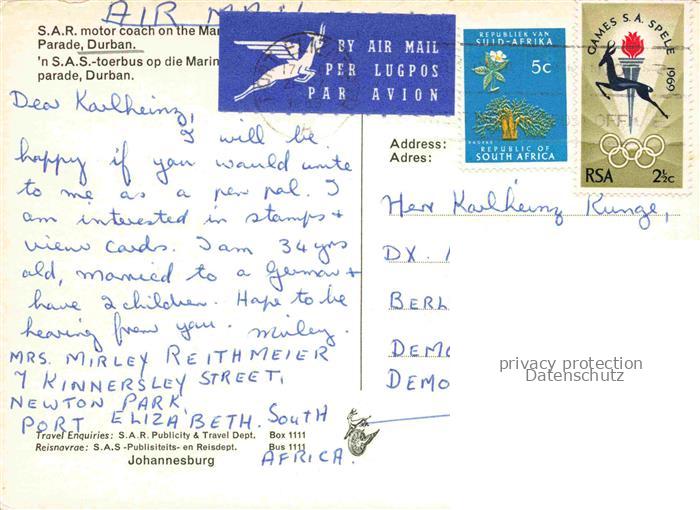 AIR MAIL
S.A.R. motor coach on the Mar
Parade, Durban.
'n S.A.S.-toerbus op die Marin
parade, Durban.
BY AIR MAIL
PER LUGPOS
PAR AVION
REPUBLIEK VAN
SUID-AFRIKA
5c
REPUBLIC OF
SOUTH AFRICA
GAMES S.A. SPELE 1969
RSA 2½c
Dear Karlheinz,
I will be
happy if you would write
to me as a pen pal. I
am interested in stamps +
view cards. I am 34 yrs
old, married to a German +
have 2 children. Hope to be
hearing from you. Mirley.
MRS. MIRLEY REITHMEIER
7 KINNERSLEY STREET,
NEWTON PARK,
PORT ELIZABETH. SOUTH
AFRICA.
Address:
Adres:
Herr Karlheinz Runge,
DX.
BERL
DEMO
DEMO
privacy protection
Datenschutz
Travel Enquiries: S.A.R. Publicity & Travel Dept. Box 1111
Reisnavrae: S.A.S -Publisiteits- en Reisdept. Bus 1111
Johannesburg